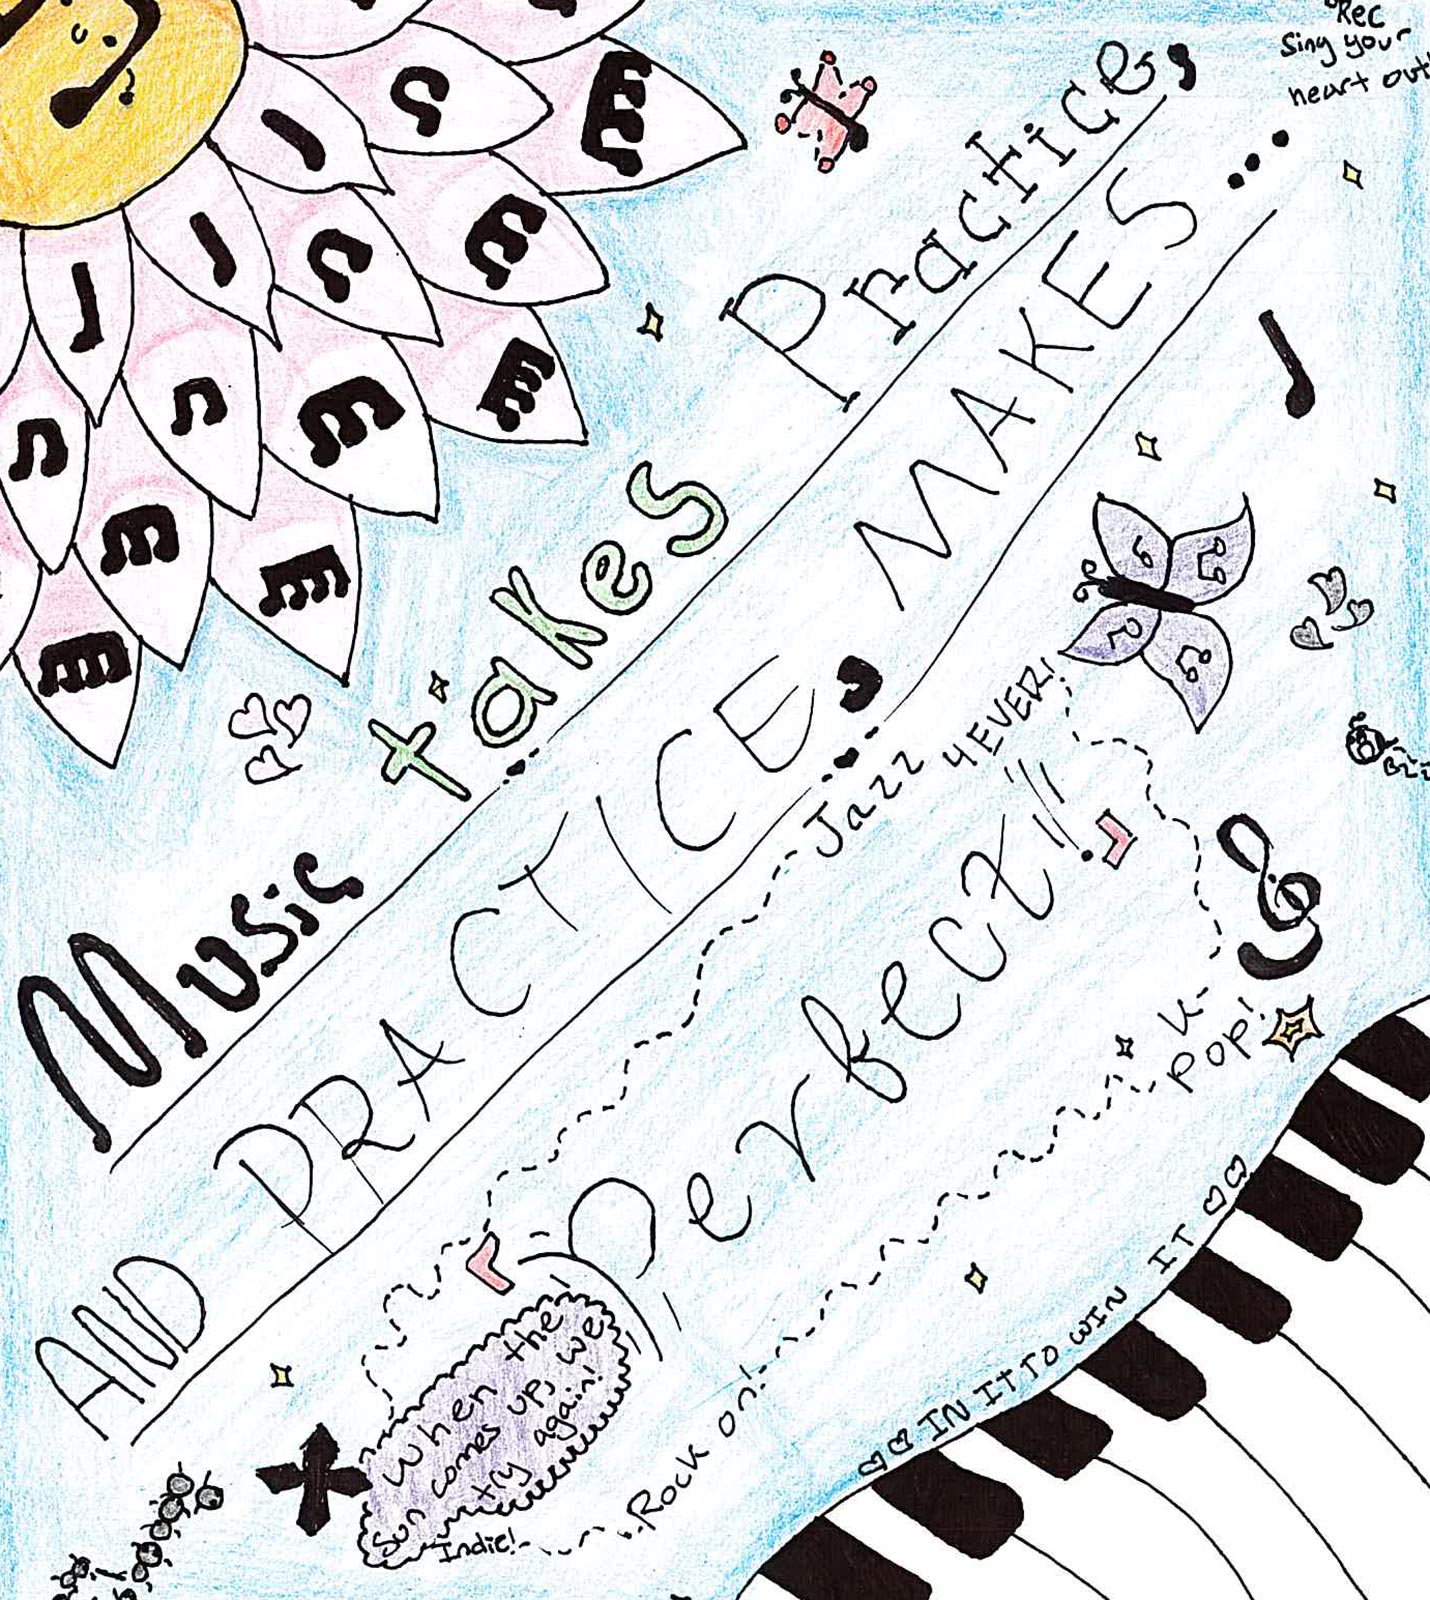 Rec
Sing your
heart out
Music takes Practice,
AND PRACTICE MAKES...
Perfect!!
Jazz 4 EVER!
K-
POP!
When the
Sun comes up, we
try again!
Indie!
Rock on!
IN IT TO WIN IT